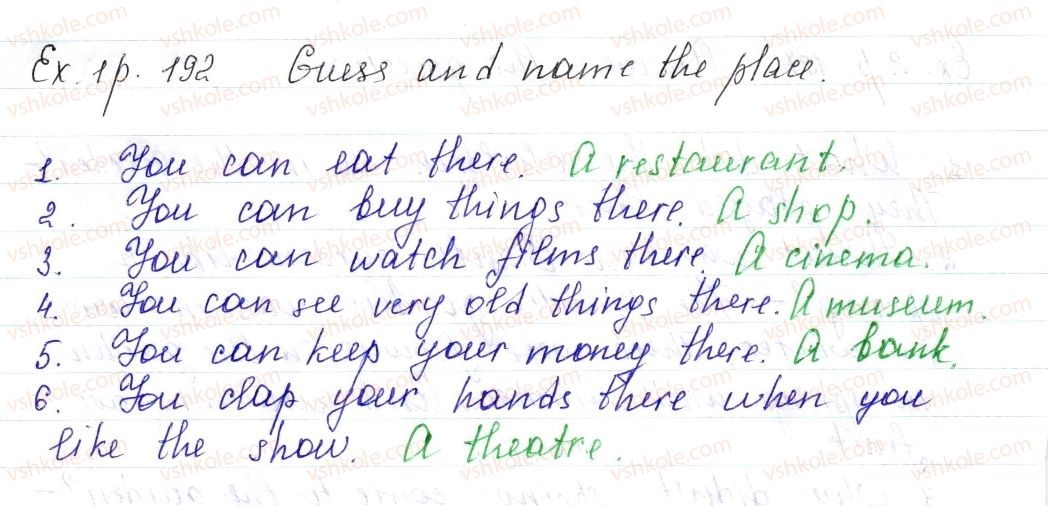 Ex. 1 p. 192 Guess and name the place.
1. You can eat there. A restaurant.
2. You can buy things there. A shop.
3. You can watch films there. A cinema.
4. You can see very old things there. A museum.
5. You can keep your money there. A bank.
6. You clap your hands there when you
like the show. A theatre.